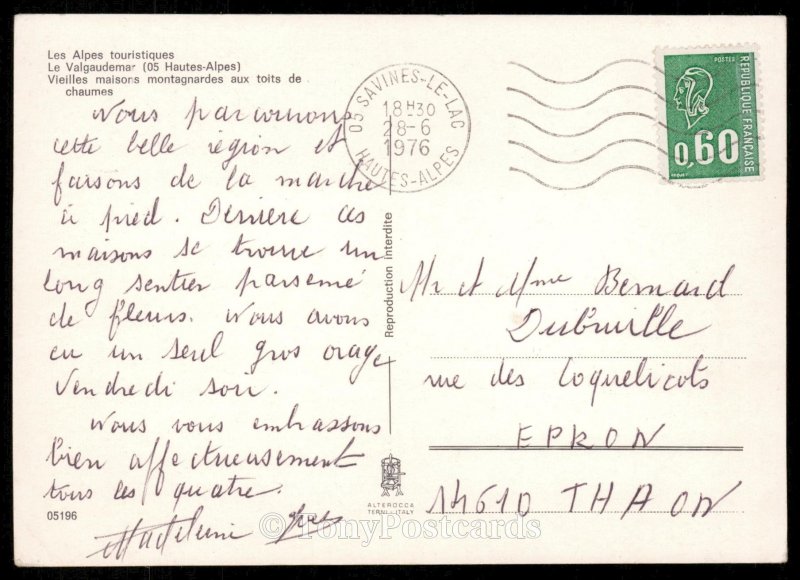 Les Alpes touristiques
Le Valgaudemar (05 Hautes-Alpes)
Vieilles maisons montagnardes aux toits de
chaumes
Nous parcourons
cette belle région et
faisons de la marche
à pied. Derrière ces
maisons se trouve un
long sentier parsemé
de fleurs. Nous avons
eu un seul gros orage
Vendredi soir.
Nous vous embrassons
bien affectueusement
tous les quatre.
Madeleine Yves
05196
05 SAVINES-LE-LAC
18H30
28-6
1976
HAUTES-ALPES
POSTES
REPUBLIQUE FRANÇAISE
0,60
Reproduction interdite
Mr et Mme Bernard
Dubruille
rue des Coquelicots
EPRON
14610 THAON
ALTEROCCA
TERNI - ITALY
© TonyPostcards